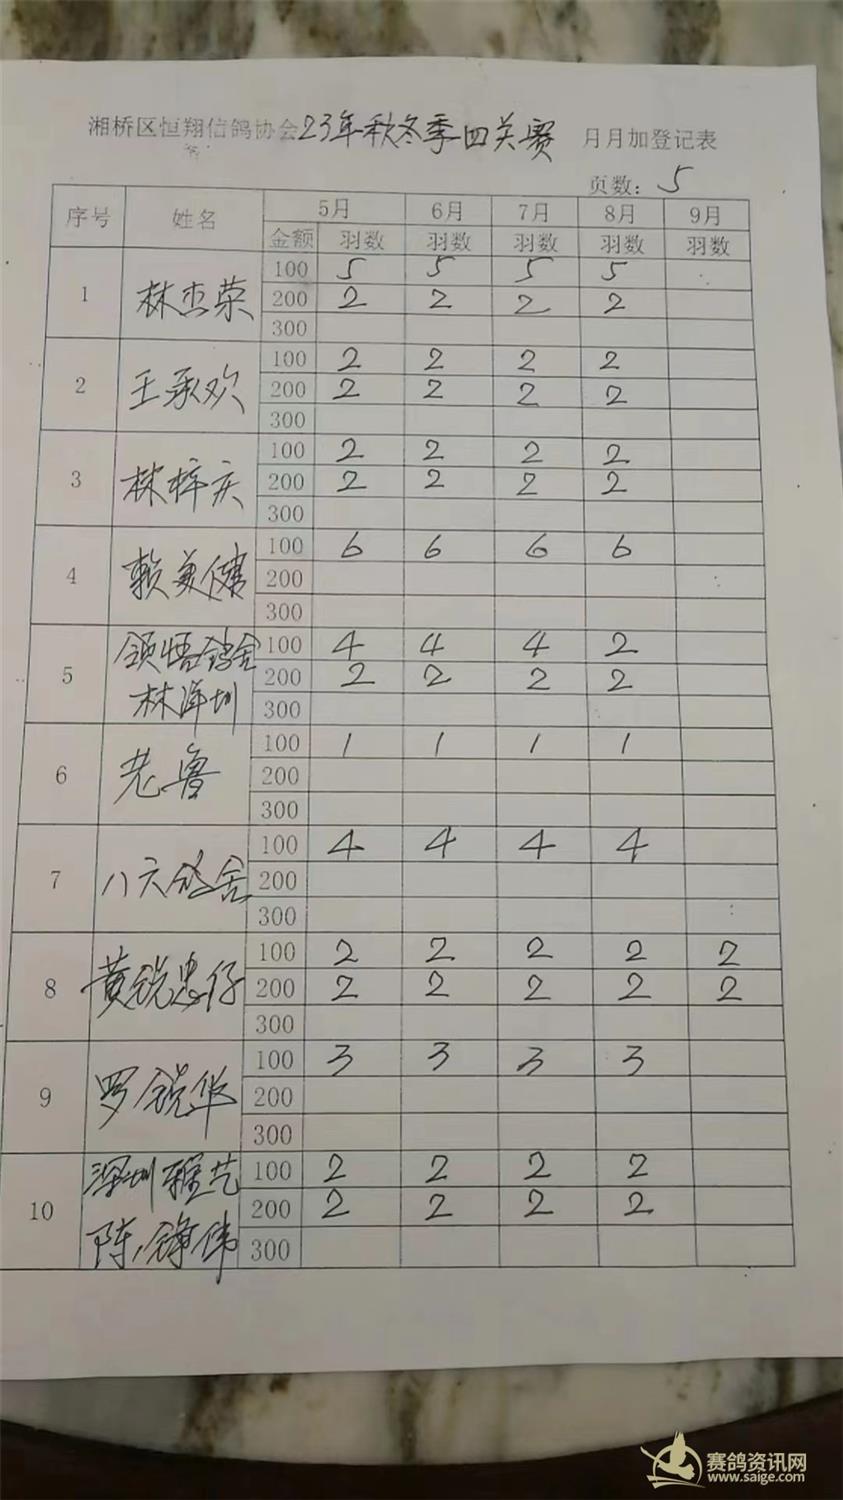 湘桥区恒翔信鸽协会23年秋冬季四关赛 月月加登记表
页数: 5
序号 姓名 5月 6月 7月 8月 9月
金额 羽数 羽数 羽数 羽数 羽数
1 林杰荣 100 5 5 5 5
200 2 2 2 2
300
2 王承欢 100 2 2 2 2
200 2 2 2 2
300
3 林梓庆 100 2 2 2 2
200 2 2 2 2
300
4 赖美健 100 6 6 6 6
200
300
5 领悟鸽舍 100 4 4 4 2
林泽圳 200 2 2 2 2
300
6 老鲁 100 1 1 1 1
200
300
7 八六鸽舍 100 4 4 4 4
200
300
8 黄锐忠仔 100 2 2 2 2 2
200 2 2 2 2 2
300
9 罗锐华 100 3 3 3 3
200
300
10 深圳雅艺 100 2 2 2 2
陈铮伟 200 2 2 2 2
300
赛鸽资讯网
www.saige.com